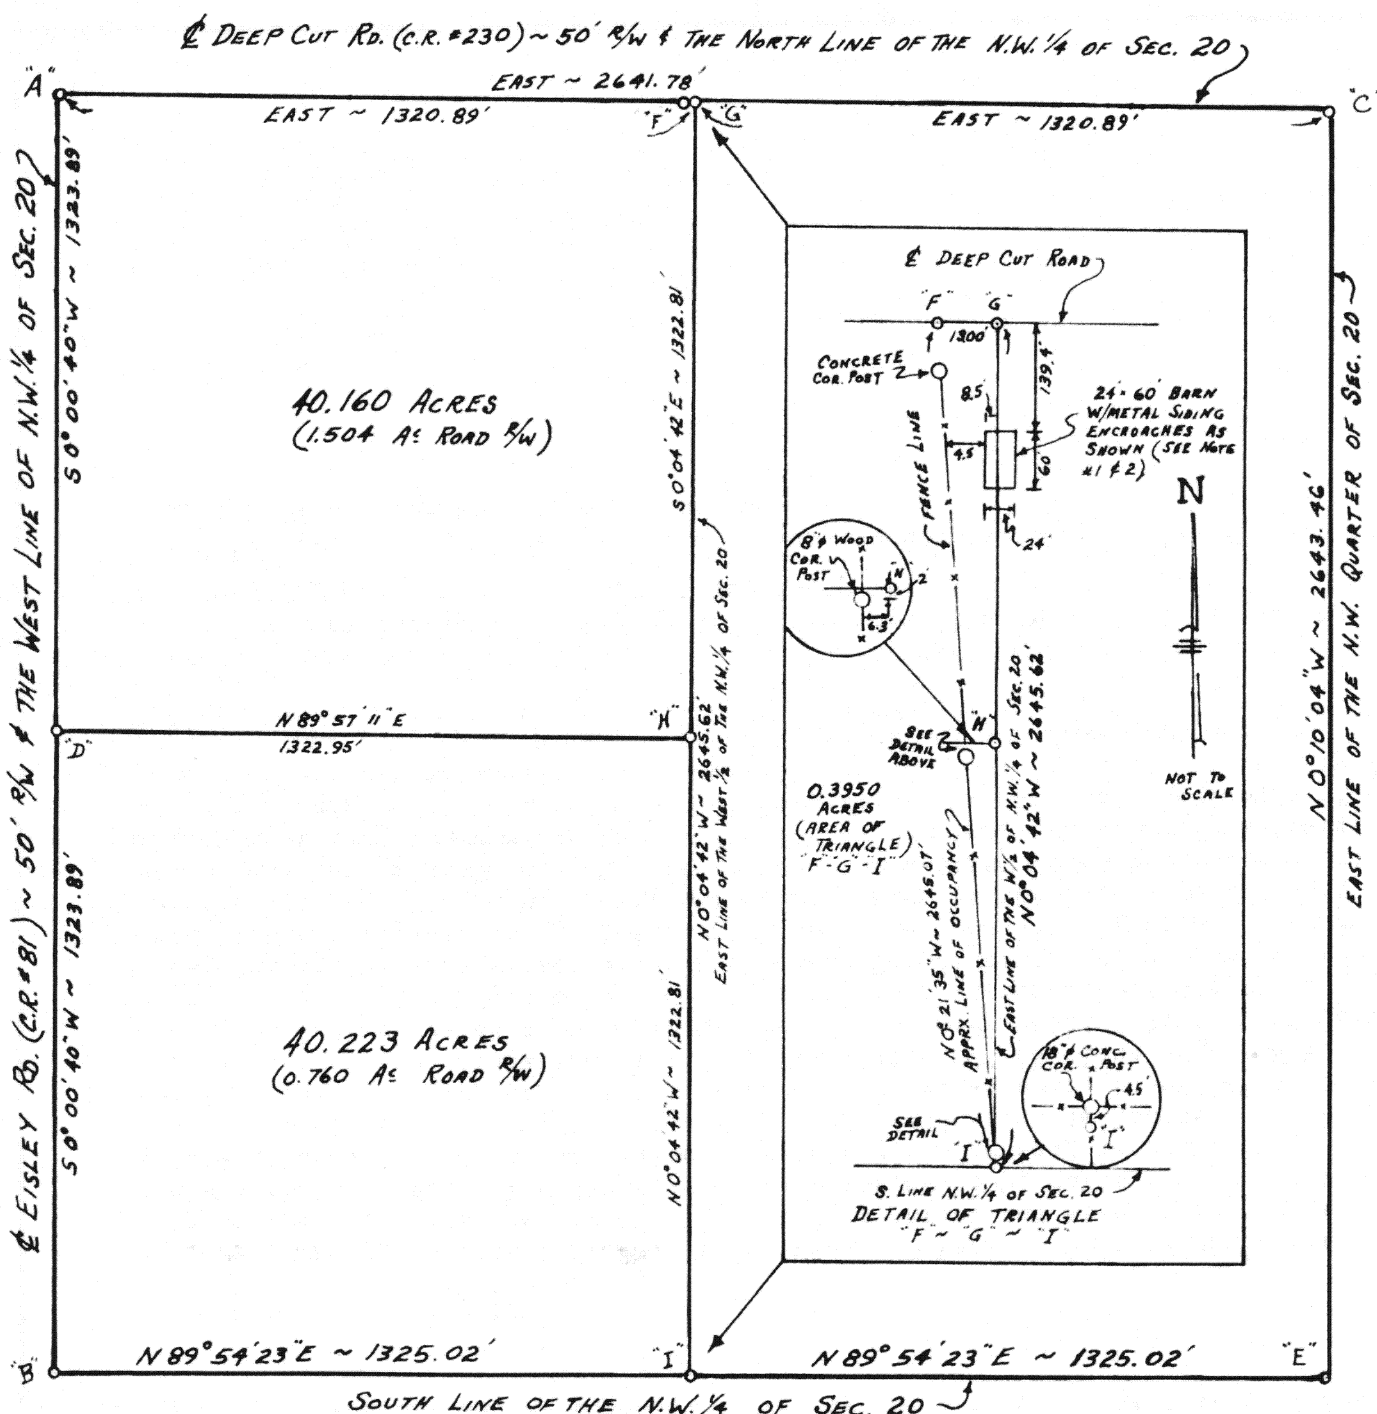 ℄ DEEP CUT RD. (C.R. #230) ~ 50' R/W & THE NORTH LINE OF THE N.W. 1/4 OF SEC. 20
"A"
EAST ~ 2641.78'
"C"
EAST ~ 1320.89'
"F"
"G"
EAST ~ 1320.89'
℄ EISLEY RD. (C.R. #81) ~ 50' R/W & THE WEST LINE OF N.W. 1/4 OF SEC. 20
S 0° 00' 40" W ~ 1323.89'
40.160 ACRES
(1.504 Ac ROAD R/W)
S 0° 04' 42" E ~ 1322.81'
N 0° 04' 42" W ~ 2645.62'
EAST LINE OF THE WEST 1/2 OF THE N.W. 1/4 OF SEC. 20
"D"
N 89° 57' 11" E
1322.95'
"H"
S 0° 00' 40" W ~ 1323.89'
40.223 ACRES
(0.760 Ac ROAD R/W)
N 0° 04' 42" W ~ 1322.81'
"B"
N 89° 54' 23" E ~ 1325.02'
"I"
N 89° 54' 23" E ~ 1325.02'
"E"
SOUTH LINE OF THE N.W. 1/4 OF SEC. 20
N 0° 10' 04" W ~ 2643.46'
EAST LINE OF THE N.W. QUARTER OF SEC. 20
℄ DEEP CUT ROAD
"F"
"G"
13.00'
CONCRETE
COR. POST
139.4'
8.5'
24' x 60' BARN
W/METAL SIDING
ENCROACHES AS
SHOWN (SEE NOTE
#1 & 2)
4.5'
60'
24'
FENCE LINE
N
NOT TO
SCALE
8" ⌀ WOOD
COR.
POST
"H"
2'
6.3'
"H"
SEE
DETAIL
ABOVE
0.3950
ACRES
(AREA OF
TRIANGLE)
"F-G-I"
N 0° 21' 35" W ~ 2645.07'
APPRX. LINE OF OCCUPANCY
EAST LINE OF THE W. 1/2 OF N.W. 1/4 OF SEC. 20
N 0° 04' 42" W ~ 2645.62'
18" ⌀ CONC.
COR. POST
4.5'
"I"
SEE
DETAIL
"I"
S. LINE N.W. 1/4 OF SEC. 20
DETAIL OF TRIANGLE
"F" ~ "G" ~ "I"